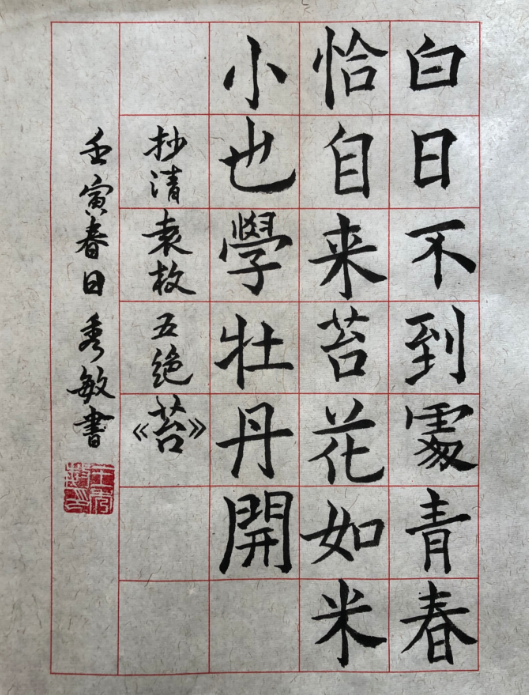 白日不到處青春
恰自来苔花如米
小也學牡丹開
抄清袁枚五绝《苔》
壬寅春日秀敏書